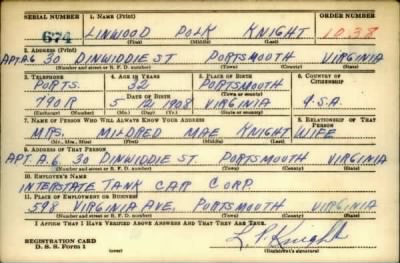 SERIAL NUMBER 1. NAME (Print) ORDER NUMBER
674 LINWOOD POLK KNIGHT 10.38
(First) (Middle) (Last)
2. ADDRESS (Print)
APT A6 30 DINWIDDIE ST PORTSMOUTH VIRGINIA
(Number and street or R. F. D. number) (Town) (County) (State)
3. TELEPHONE 4. AGE IN YEARS 5. PLACE OF BIRTH 6. COUNTRY OF CITIZENSHIP
PORTS. 32 PORTSMOUTH
DATE OF BIRTH (Town or county)
790R 5 12 1908 VIRGINIA U.S.A.
(Exchange) (Number) (Mo.) (Day) (Yr.) (State or country)
7. NAME OF PERSON WHO WILL ALWAYS KNOW YOUR ADDRESS 8. RELATIONSHIP OF THAT PERSON
MRS. MILDRED MAE KNIGHT WIFE
(Mr., Mrs., Miss) (First) (Middle) (Last)
9. ADDRESS OF THAT PERSON
APT. A.6. 30 DINWIDDIE ST. PORTSMOUTH VIRGINIA
(Number and street or R. F. D. number) (Town) (County) (State)
10. EMPLOYER'S NAME
INTERSTATE TANK CAR CORP.
11. PLACE OF EMPLOYMENT OR BUSINESS
598 VIRGINIA AVE. PORTSMOUTH VIRGINIA
(Number and street or R. F. D. number) (Town) (County) (State)
I AFFIRM THAT I HAVE VERIFIED ABOVE ANSWERS AND THAT THEY ARE TRUE.
REGISTRATION CARD
D. S. S. Form 1 L. P. Knight
(Registrant's signature)